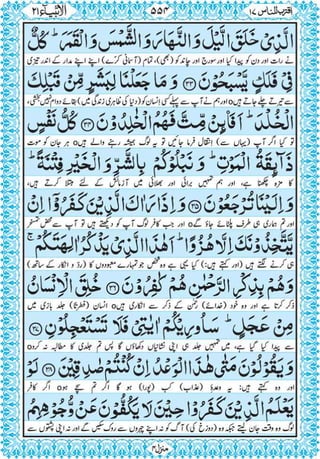 اقترب للناس ١٧
٥٥٤
الانبياء ٢١
الَّذِیْ خَلَقَ الَّیْلَ وَ النَّهَارَ وَ الشَّمْسَ وَ الْقَمَرَ ؕ كُلٌّ
نے رات اور دن کو پیدا کیا اور سورج اور چاند کو (بھی)، تمام (آسمانی کرے) اپنے اپنے مدار کے اندر تیزی
فِیْ فَلَكٍ یَّسْبَحُوْنَ ﴿۳۳﴾ وَ مَا جَعَلْنَا لِبَشَرٍ مِّنْ قَبْلِكَ
سے تیرتے چلے جاتے ہیں o اور ہم نے آپ سے پہلے کسی انسان کو (دنیا کی ظاہری زندگی میں) بقائے دوام نہیں بخشی،
الْخُلْدَ ؕ اَفَاۡئِنْ مِّتَّ فَهُمُ الْخٰلِدُوْنَ ﴿۳۴﴾ كُلُّ نَفْسٍ
تو کیا اگر آپ (یہاں سے) انتقال فرما جائیں تو یہ لوگ ہمیشہ رہنے والے ہیں o ہر جان کو موت
ذَآىِٕقَةُ الْمَوْتِ ؕ وَ نَبْلُوْكُمْ بِالشَّرِّ وَ الْخَیْرِ فِتْنَةً ؕ
کا مزہ چکھنا ہے، اور ہم تمہیں برائی اور بھلائی میں آزمائش کے لئے مبتلا کرتے ہیں،
وَ اِلَیْنَا تُرْجَعُوْنَ ﴿۳۵﴾ وَ اِذَا رَاٰكَ الَّذِیْنَ كَفَرُوْۤا اِنْ
اور تم ہماری ہی طرف پلٹائے جاؤ گے o اور جب کافر لوگ آپ کو دیکھتے ہیں تو آپ سے محض تمسخر
یَّتَّخِذُوْنَكَ اِلَّا هُزُوًا ؕ اَهٰذَا الَّذِیْ یَذْكُرُ اٰلِهَتَكُمْ ۚ
ہی کرنے لگتے ہیں (اور کہتے ہیں:) کیا یہی ہے وہ شخص جو تمہارے معبودوں کا (ردّ و انکار کے ساتھ)
وَ هُمْ بِذِكْرِ الرَّحْمٰنِ هُمْ كٰفِرُوْنَ ﴿۳۶﴾ خُلِقَ الْاِنْسَانُ
ذکر کرتا ہے اور وہ خود (خدائے) رحمٰن کے ذکر سے انکاری ہیں o انسان (فطرتاً) جلد بازی میں
مِنْ عَجَلٍ ؕ سَاُورِیْكُمْ اٰیٰتِیْ فَلَا تَسْتَعْجِلُوْنِ ﴿۳۷﴾
سے پیدا کیا گیا ہے، میں تمہیں جلد ہی اپنی نشانیاں دکھاؤں گا پس تم جلدی کا مطالبہ نہ کرو o
وَ یَقُوْلُوْنَ مَتٰی هٰذَا الْوَعْدُ اِنْ كُنْتُمْ صٰدِقِیْنَ ﴿۳۸﴾ لَوْ
اور وہ کہتے ہیں: یہ وعدۂ (عذاب) کب (پورا) ہو گا اگر تم سچے ہو o اگر کافر
یَعْلَمُ الَّذِیْنَ كَفَرُوْا حِیْنَ لَا یَكُفُّوْنَ عَنْ وُّجُوْهِهِمُ
لوگ وہ وقت جان لیتے جبکہ وہ (دوزخ کی) آگ کو نہ اپنے چہروں سے روک سکیں گے اور نہ اپنی پشتوں سے
منزل ٤